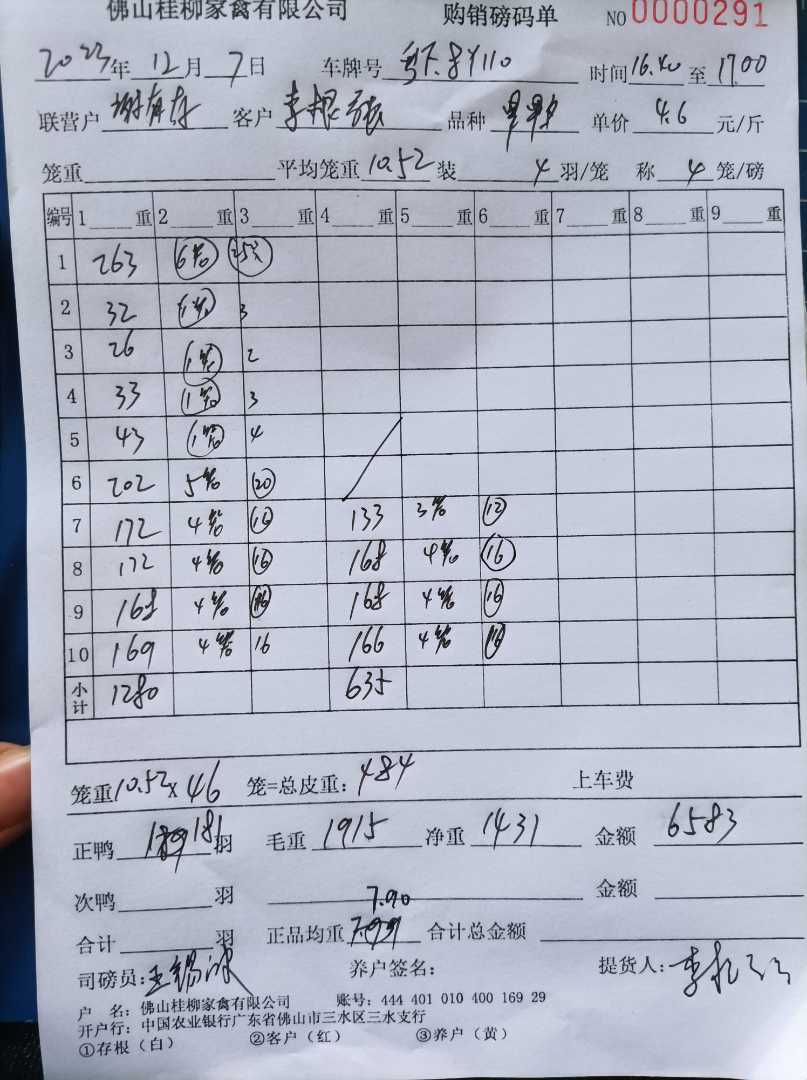 佛山桂柳家禽有限公司 购销磅码单 NO 0000291
2023年 12月 7日 车牌号 8Y110 时间16.40至17.00
联营户 谢有存 客户 李根 品种 单价 4.6 元/斤
笼重 平均笼重10.52装 4羽/笼 称 4 笼/磅
编号 1 重 2 重 3 重 4 重 5 重 6 重 7 重 8 重 9 重
1 263 6笼
2 32 1笼 3
3 26 1笼 2
4 33 1笼 3
5 43 1笼 4
6 202 5笼 20
7 172 4笼 16 133 3笼 12
8 172 4笼 16 168 4笼 16
9 168 4笼 16 168 4笼 16
10 169 4笼 16 166 4笼 16
小计 1280 635
笼重10.52×46 笼=总皮重:484 上车费
正鸭 181羽 毛重 1915 净重 1431 金额 6583
次鸭 羽 金额
7.90
合计 羽 正品均重 合计总金额
司磅员: 养户签名: 提货人:李
户 名: 佛山桂柳家禽有限公司 账号: 444 401 010 400 169 29
开户行: 中国农业银行广东省佛山市三水区三水支行
①存根(白) ②客户(红) ③养户(黄)